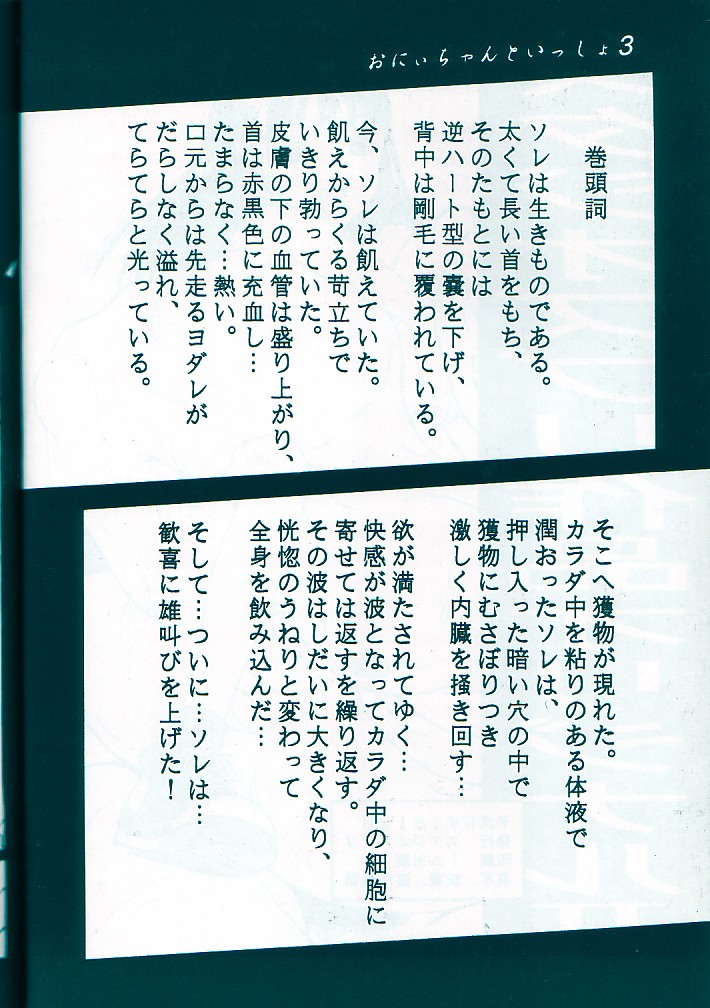 おにぃちゃんといっしょ3
巻頭詞
ソレは生きものである。
太くて長い首をもち、
そのたもとには
逆ハート型の嚢を下げ、
背中は剛毛に覆われている。
今、ソレは飢えていた。
飢えからくる苛立ちで
いきり勃っていた。
皮膚の下の血管は盛り上がり、
首は赤黒色に充血し…
たまらなく…熱い。
口元からは先走るヨダレが
だらしなく溢れ、
てらてらと光っている。
そこへ獲物が現れた。
カラダ中を粘りのある体液で
潤おったソレは、
押し入った暗い穴の中で
獲物にむさぼりつき
激しく内臓を掻き回す…
欲が満たされてゆく…
快感が波となってカラダ中の細胞に
寄せては返すを繰り返す。
その波はしだいに大きくなり、
恍惚のうねりと変わって
全身を飲み込んだ…
そして…ついに…ソレは…
歓喜に雄叫びを上げた！